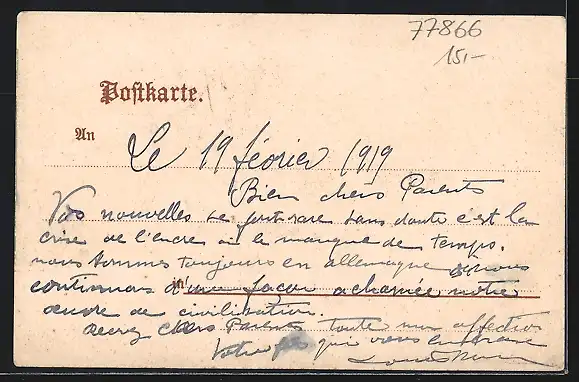 77866
15,-
Postkarte.
An
Le 19 février 1919
Bien chers Parents
Vos nouvelles se font rare sans doute c'est la
crise de l'encre ou le manque de temps.
nous sommes toujours en allemagne et nous
in
continuons d'une façon acharnée notre
œuvre de civilisation.
Recevez chers Parents toute mon affection
Votre fils qui vous embrasse